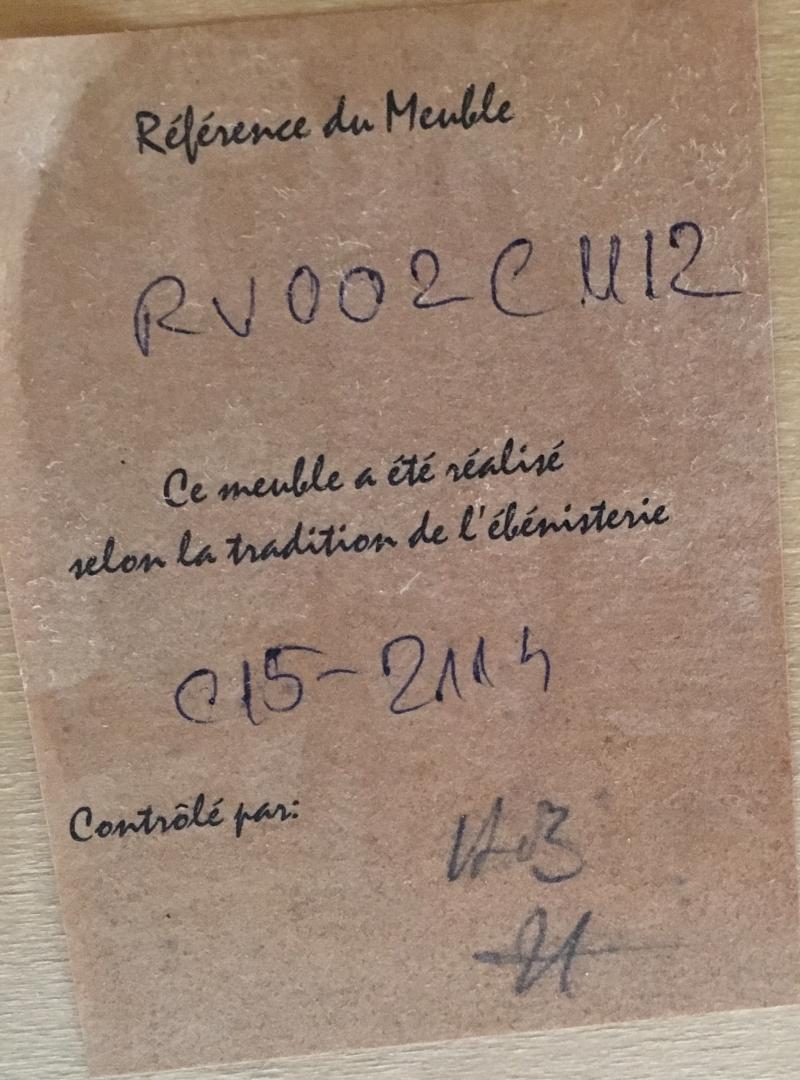 Référence du Meuble
RV002CM12
Ce meuble a été réalisé
selon la tradition de l'ébénisterie
C15-2114
Contrôlé par: